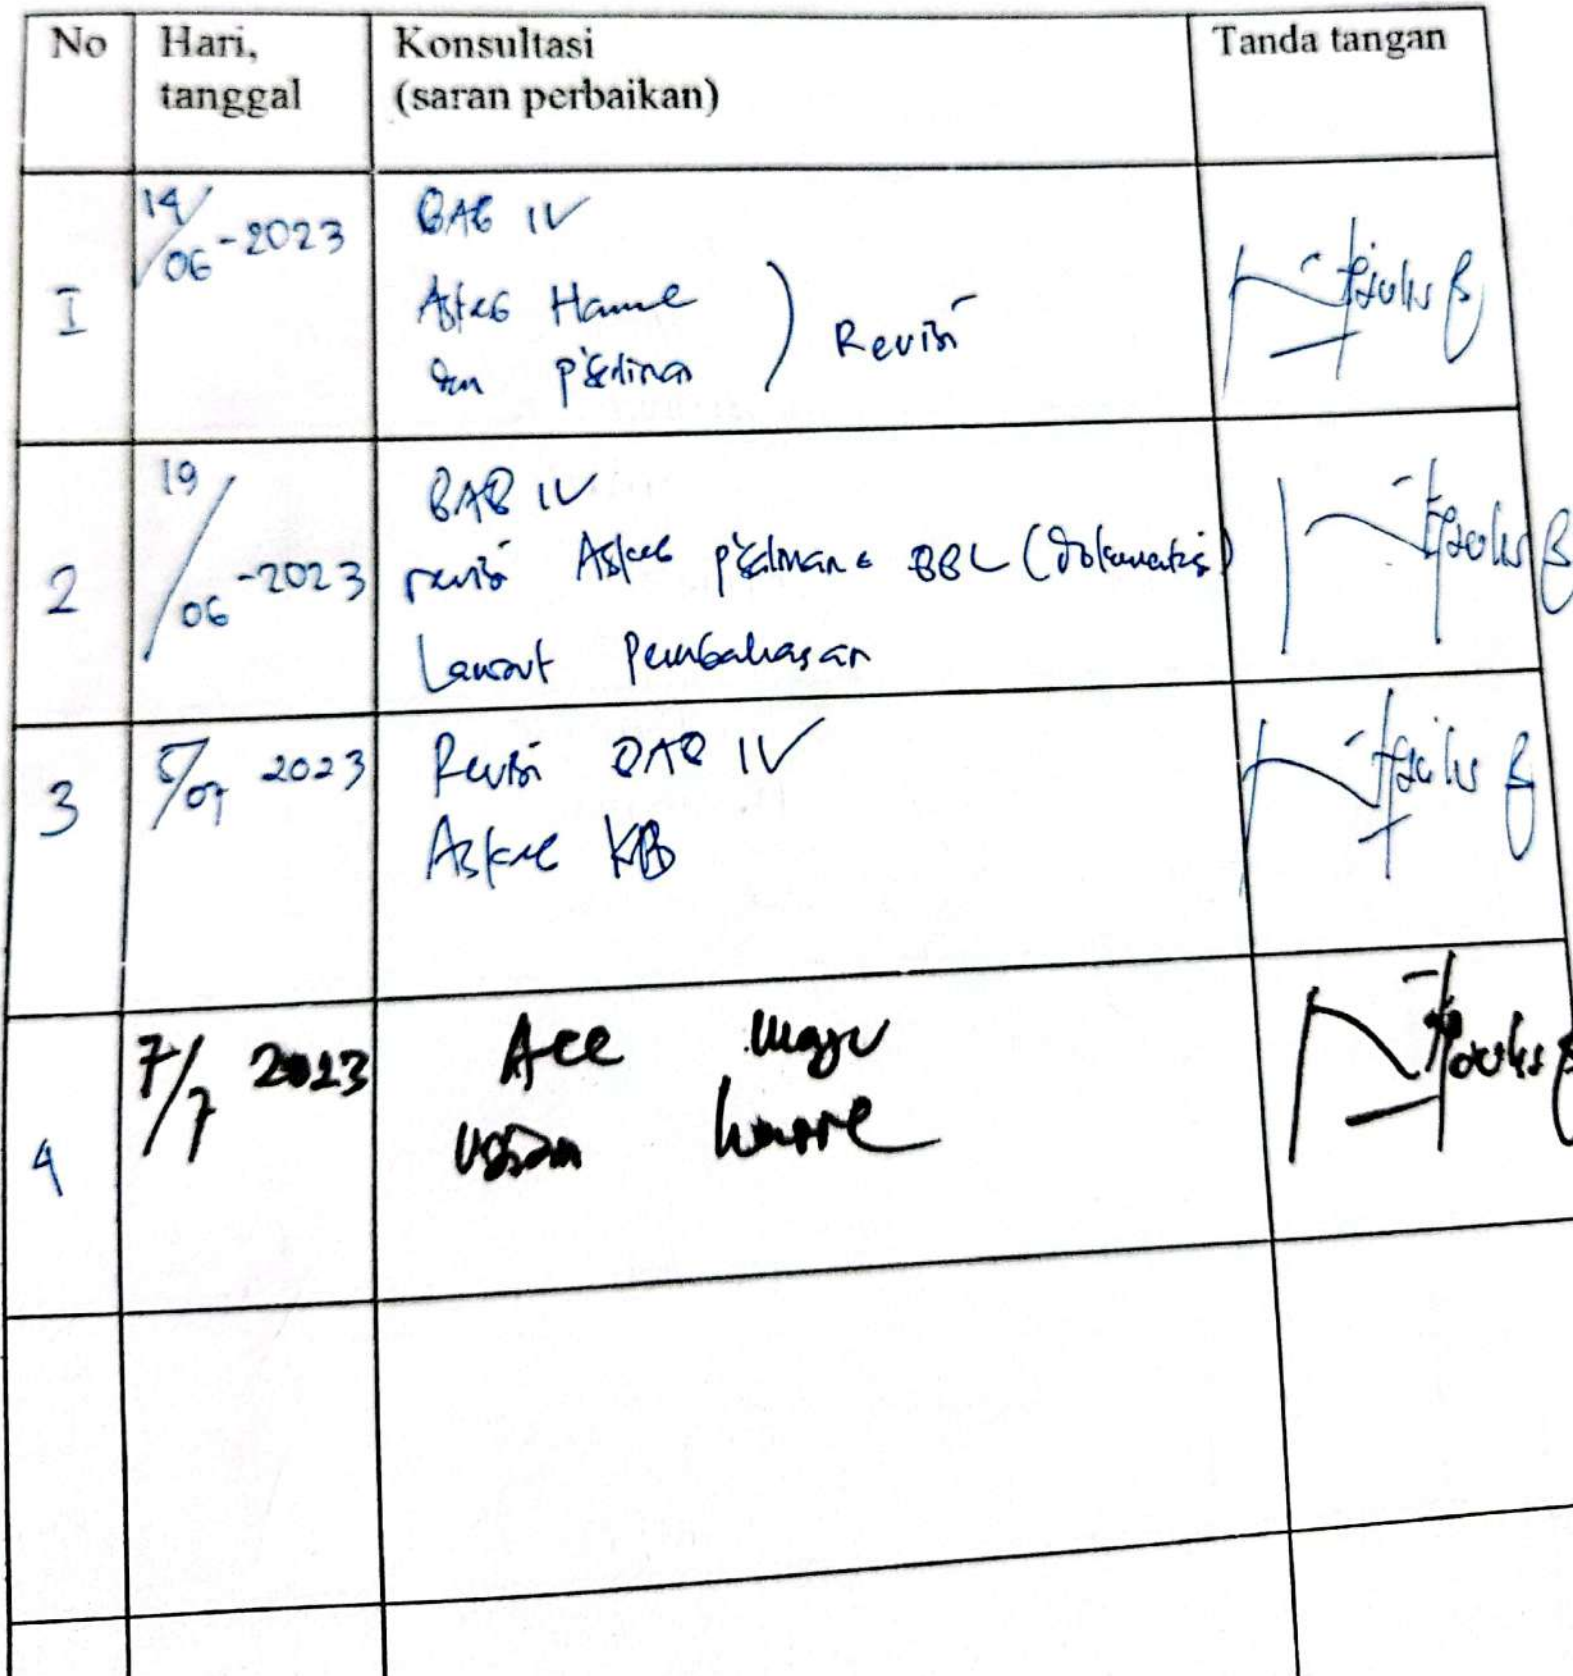 No Hari, tanggal Konsultasi (saran perbaikan) Tanda tangan
I 14/06-2023 BAB IV
Askeb Hamil
dan p'salinan ) Revisi
2 19/06-2023 BAB IV
revisi Askeb p'salinan & BBL (
Lanjut Pembahasan
3 5/07 2023 Revisi BAB IV
Askeb KB
4 7/7 2023 Acc maju
ujian